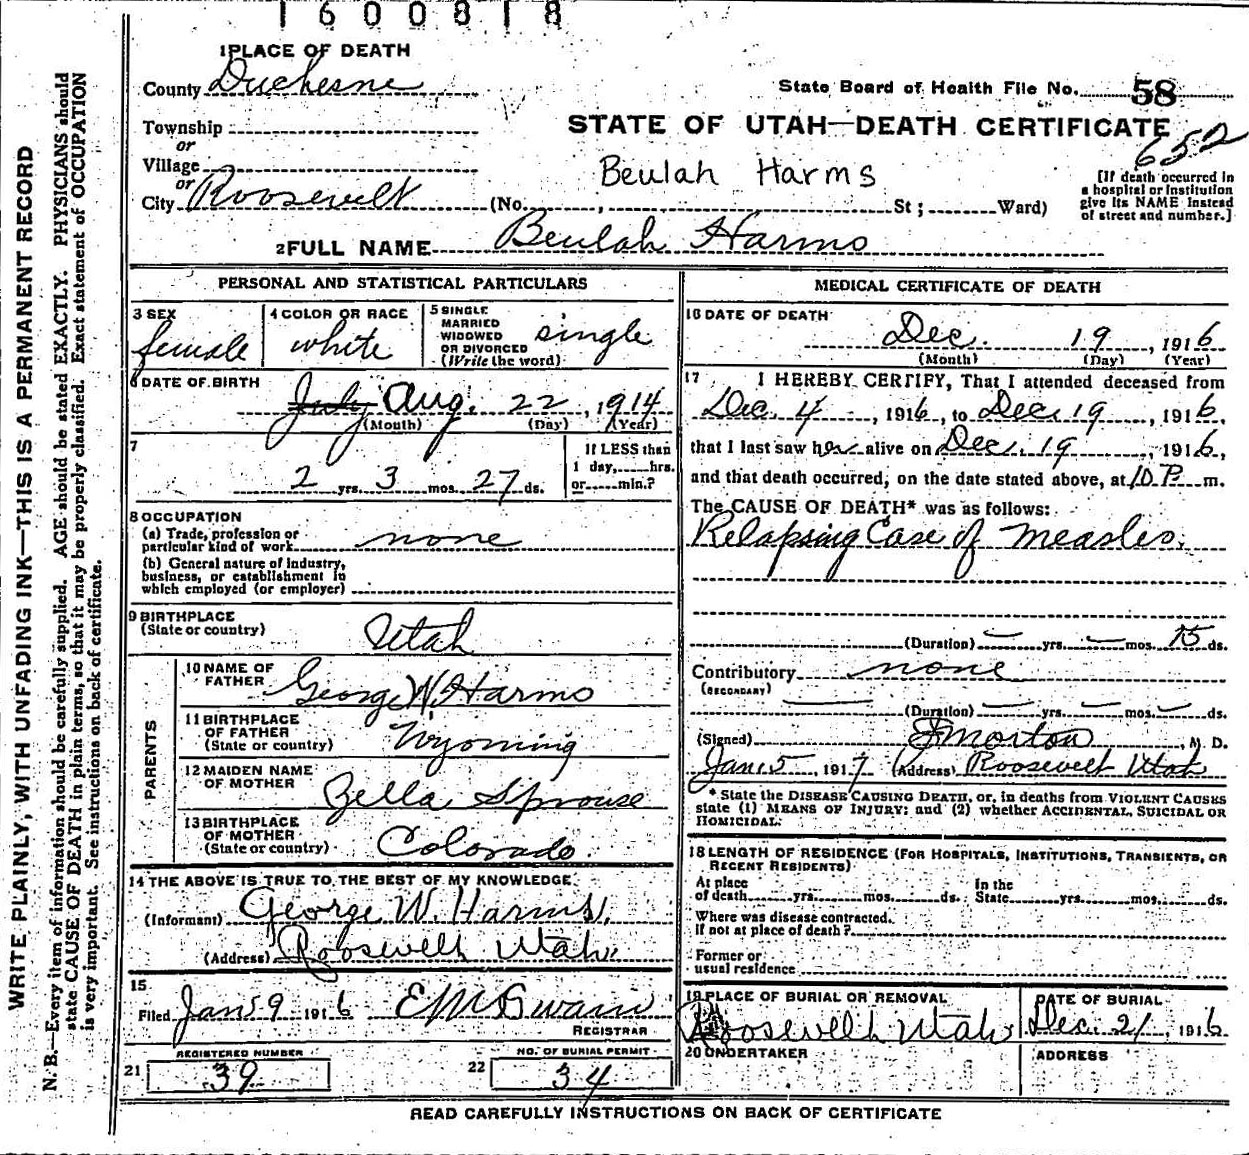 1600818
1 PLACE OF DEATH
County Duchesne
State Board of Health File No. 58
Township
or
STATE OF UTAH—DEATH CERTIFICATE
652
Village
or
Beulah Harms
City Roosevelt (No. , St ; Ward)
[If death occurred in
a hospital or institution
give its NAME instead
of street and number.]
2 FULL NAME Beulah Harms
PERSONAL AND STATISTICAL PARTICULARS
3 SEX
female
4 COLOR OR RACE
white
5 SINGLE
MARRIED
WIDOWED
OR DIVORCED
(Write the word)
single
6 DATE OF BIRTH
July Aug. 22, 1914
(Month) (Day) (Year)
7
2 yrs. 3 mos. 27 ds.
If LESS than
1 day, hrs.
or min.?
8 OCCUPATION
(a) Trade, profession or
particular kind of work none
(b) General nature of industry,
business, or establishment in
which employed (or employer)
9 BIRTHPLACE
(State or country)
Utah
PARENTS
10 NAME OF
FATHER
George W. Harms
11 BIRTHPLACE
OF FATHER
(State or country)
Wyoming
12 MAIDEN NAME
OF MOTHER
Zella Sprouse
13 BIRTHPLACE
OF MOTHER
(State or country)
Colorado
14 THE ABOVE IS TRUE TO THE BEST OF MY KNOWLEDGE
(Informant) George W. Harms,
(Address) Roosevelt Utah.
15
Filed Jan 9 1916
REGISTRAR
REGISTERED NUMBER
21 39
NO. OF BURIAL PERMIT
22 34
MEDICAL CERTIFICATE OF DEATH
16 DATE OF DEATH
Dec. 19, 1916
(Month) (Day) (Year)
17 I HEREBY CERTIFY, That I attended deceased from
Dec. 4, 1916, to Dec. 19, 1916,
that I last saw her alive on Dec. 19, 1916,
and that death occurred, on the date stated above, at 10 P. m.
The CAUSE OF DEATH* was as follows:
Relapsing Case of Measles.
(Duration) — yrs. — mos. 15 ds.
Contributory none
(SECONDARY)
(Duration) — yrs. — mos. — ds.
(Signed) Morton, M. D.
Jan. 5, 1917 (Address) Roosevelt Utah
* State the DISEASE CAUSING DEATH, or, in deaths from VIOLENT CAUSES
state (1) MEANS OF INJURY; and (2) whether ACCIDENTAL, SUICIDAL OR
HOMICIDAL.
18 LENGTH OF RESIDENCE (FOR HOSPITALS, INSTITUTIONS, TRANSIENTS, OR
RECENT RESIDENTS)
At place
of death yrs. mos. ds.
In the
State yrs. mos. ds.
Where was disease contracted.
If not at place of death?
Former or
usual residence
19 PLACE OF BURIAL OR REMOVAL
Roosevelt Utah
DATE OF BURIAL
Dec. 21, 1916
20 UNDERTAKER
ADDRESS
READ CAREFULLY INSTRUCTIONS ON BACK OF CERTIFICATE
WRITE PLAINLY, WITH UNFADING INK—THIS IS A PERMANENT RECORD
N. B.—Every item of information should be carefully supplied. AGE should be stated EXACTLY. PHYSICIANS should
state CAUSE OF DEATH in plain terms, so that it may be properly classified. Exact statement of OCCUPATION
is very important. See instructions on back of certificate.